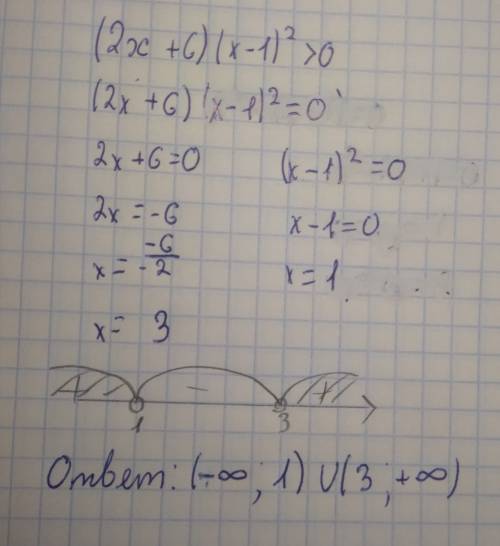 (2x + 6) (x - 1)² > 0
(2x + 6) (x - 1)² = 0
2x + 6 = 0 (x - 1)² = 0
2x = -6 x - 1 = 0
x = -6/-2 x = 1
x = 3
+ - +
1 3
Ответ: (-∞; 1) ∪ (3; +∞)